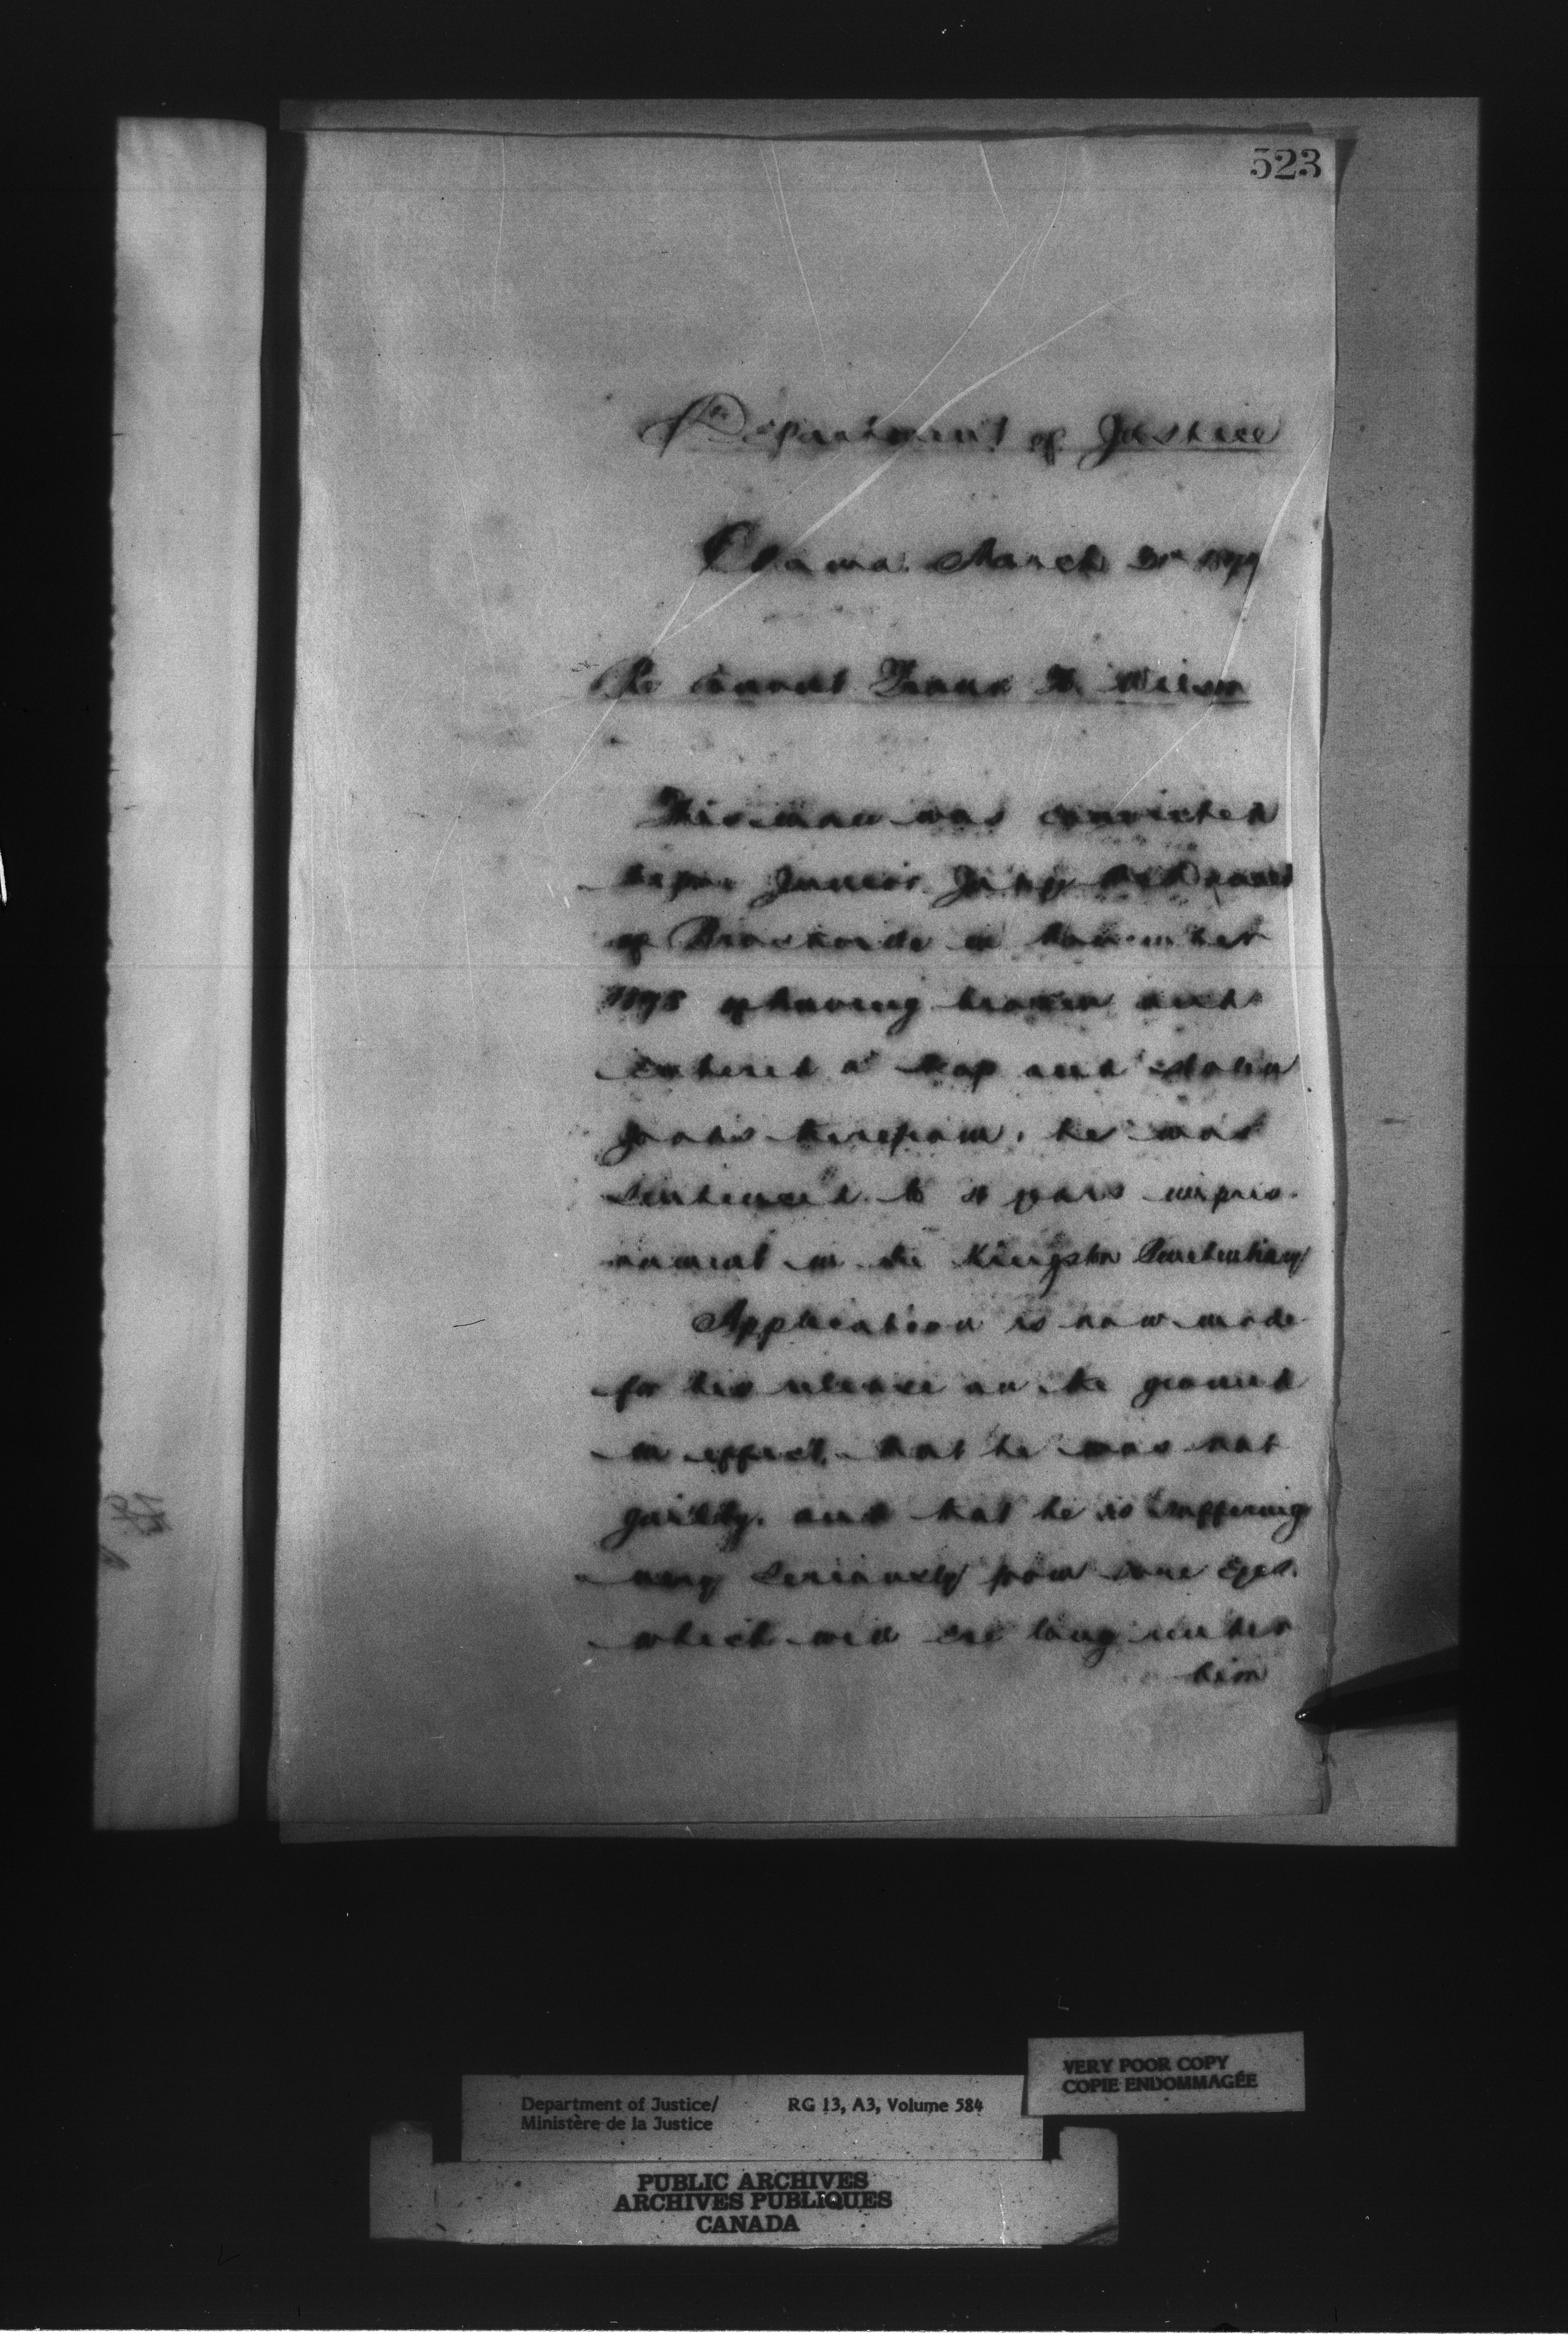 523
Department of Justice
Ottawa March 1879
Re Convict Frank H. Wilson
This man was convicted
before Junior Judge McDonald
of Brockville in November
1878 of having broken and
entered a shop and stolen
goods therefrom, he was
sentenced to years impris-
onment in the Kingston Penitentiary
Application is now made
for his release on the ground
in effect, that he was not
guilty. and that he is suffering
very seriously from sore Eyes.
which will ere long render
him
Department of Justice/
Ministère de la Justice
RG 13, A3, Volume 584
VERY POOR COPY
COPIE ENDOMMAGÉE
PUBLIC ARCHIVES
ARCHIVES PUBLIQUES
CANADA